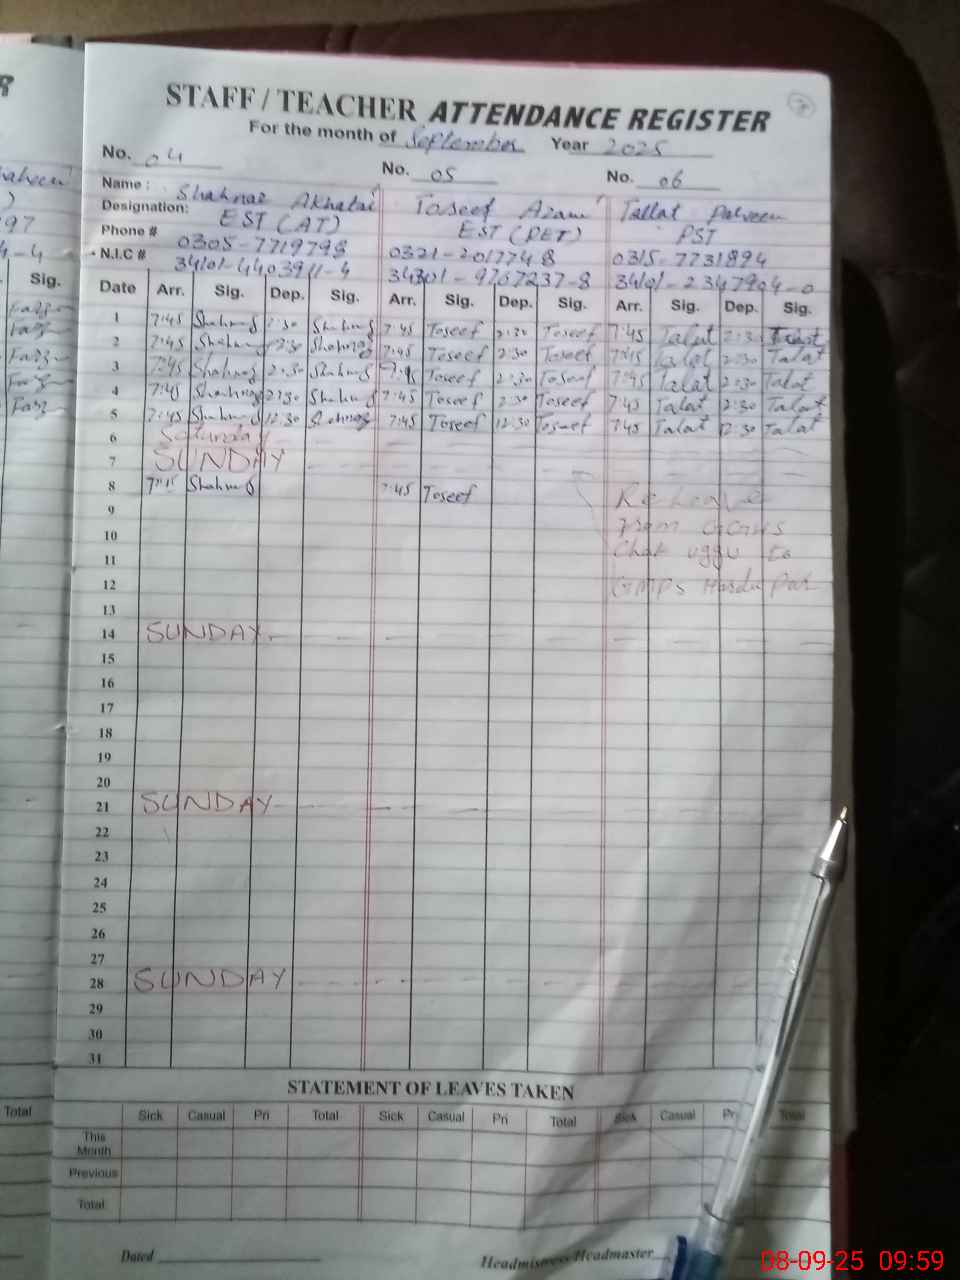 R
STAFF / TEACHER ATTENDANCE REGISTER
For the month of September Year 2025
No. 04 No. 05 No. 06
Name : Shahnaz Akhatar Toseef Azam Tallat Parveen
Designation: EST (AT) EST (PET) PST
Phone # 0305-7719798 0321-2017748 0315-7731894
N.I.C # 34101-4403911-4 34301-9767237-8 34101-2347904-0
Sig. Date Arr. Sig. Dep. Sig. Arr. Sig. Dep. Sig. Arr. Sig. Dep. Sig.
1 7:45 Shahnaz 2:30 Shahnaz 7:45 Toseef 2:30 Toseef 7:45 Talat 2:30 Talat
2 7:45 Shahnaz 2:30 Shahnaz 7:45 Toseef 2:30 Toseef 7:45 Talat 2:30 Talat
3 7:45 Shahnaz 2:30 Shahnaz 7:45 Toseef 2:30 Toseef 7:45 Talat 2:30 Talat
4 7:45 Shahnaz 2:30 Shahnaz 7:45 Toseef 2:30 Toseef 7:45 Talat 2:30 Talat
5 7:45 Shahnaz 12:30 Shahnaz 7:45 Toseef 12:30 Toseef 7:45 Talat 12:30 Talat
6 Saturday
7 SUNDAY
8 7:45 Shahnaz 7:45 Toseef Releave
9 from GGHS
10 Chak uggu to
11
12 GMPS
13
14 SUNDAY
15
16
17
18
19
20
21 SUNDAY
22
23
24
25
26
27
28 SUNDAY
29
30
31
STATEMENT OF LEAVES TAKEN
Total Sick Casual Pri Total Sick Casual Pri Total Sick Casual Pri Total
This Month
Previous
Total
Dated Headmistress Headmaster
08-09-25 09:59